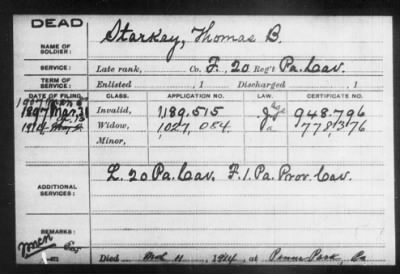 DEAD
NAME OF SOLDIER: Starkey, Thomas B.
SERVICE: Late rank, Co. F, 20 Reg't Pa. Cav.
TERM OF SERVICE: Enlisted , 1 Discharged , 1
DATE OF FILING. CLASS. APPLICATION NO. LAW. CERTIFICATE NO.
1897 Mar. Invalid, 1,189.515 Age 948.796
1914 Widow, 1027,084 a 778,376
Minor,
ADDITIONAL SERVICES: L. 20 Pa. Cav. F. 1. Pa. Prov. Cav.
REMARKS:
Died Mch 11, 1914, at Penns Park, Pa